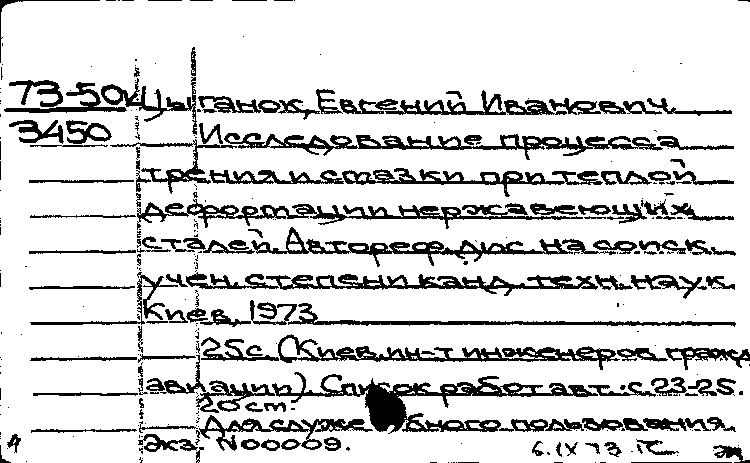 73-50к Цыганок, Евгений Иванович.
3450 Исследование процесса
трения и смазки при теплой
деформации нержавеющих
сталей. Автореф. дис. на соиск.
учен. степени канд. техн. наук.
Киев, 1973
25с. (Киев. ин-т инженеров гражд.
авиации). Список работ авт.: с. 23-25.
20 ст.
Для служебного пользования.
Экз. N00009.
6.IX 73